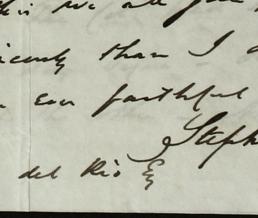 we all
than I
ever faithful
Steph
del Rio Esq